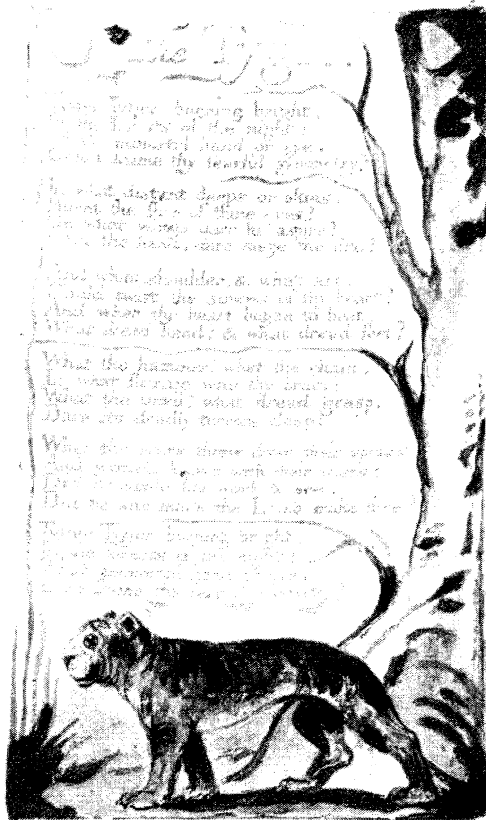 The Tyger
Tyger burning bright,
of the night:
immortal hand or eye,
frame thy fearful symmetry?
In what distant deeps or skies.
Burnt the fire of thine eyes?
On what wings dare he aspire?
What the hand, dare seize the fire?
And what shoulder, & what art,
Could twist the sinews of thy heart?
And when thy heart began to beat,
What dread hand? & what dread feet?
What the hammer? what the chain,
In what furnace was thy brain?
What the anvil? what dread grasp,
Dare its deadly terrors clasp?
When the stars threw down their spears
And water'd heaven with their tears:
Did he smile his work to see?
Did he who made the Lamb make thee?
Tyger Tyger burning bright,
In the forests of the night:
immortal hand or eye,